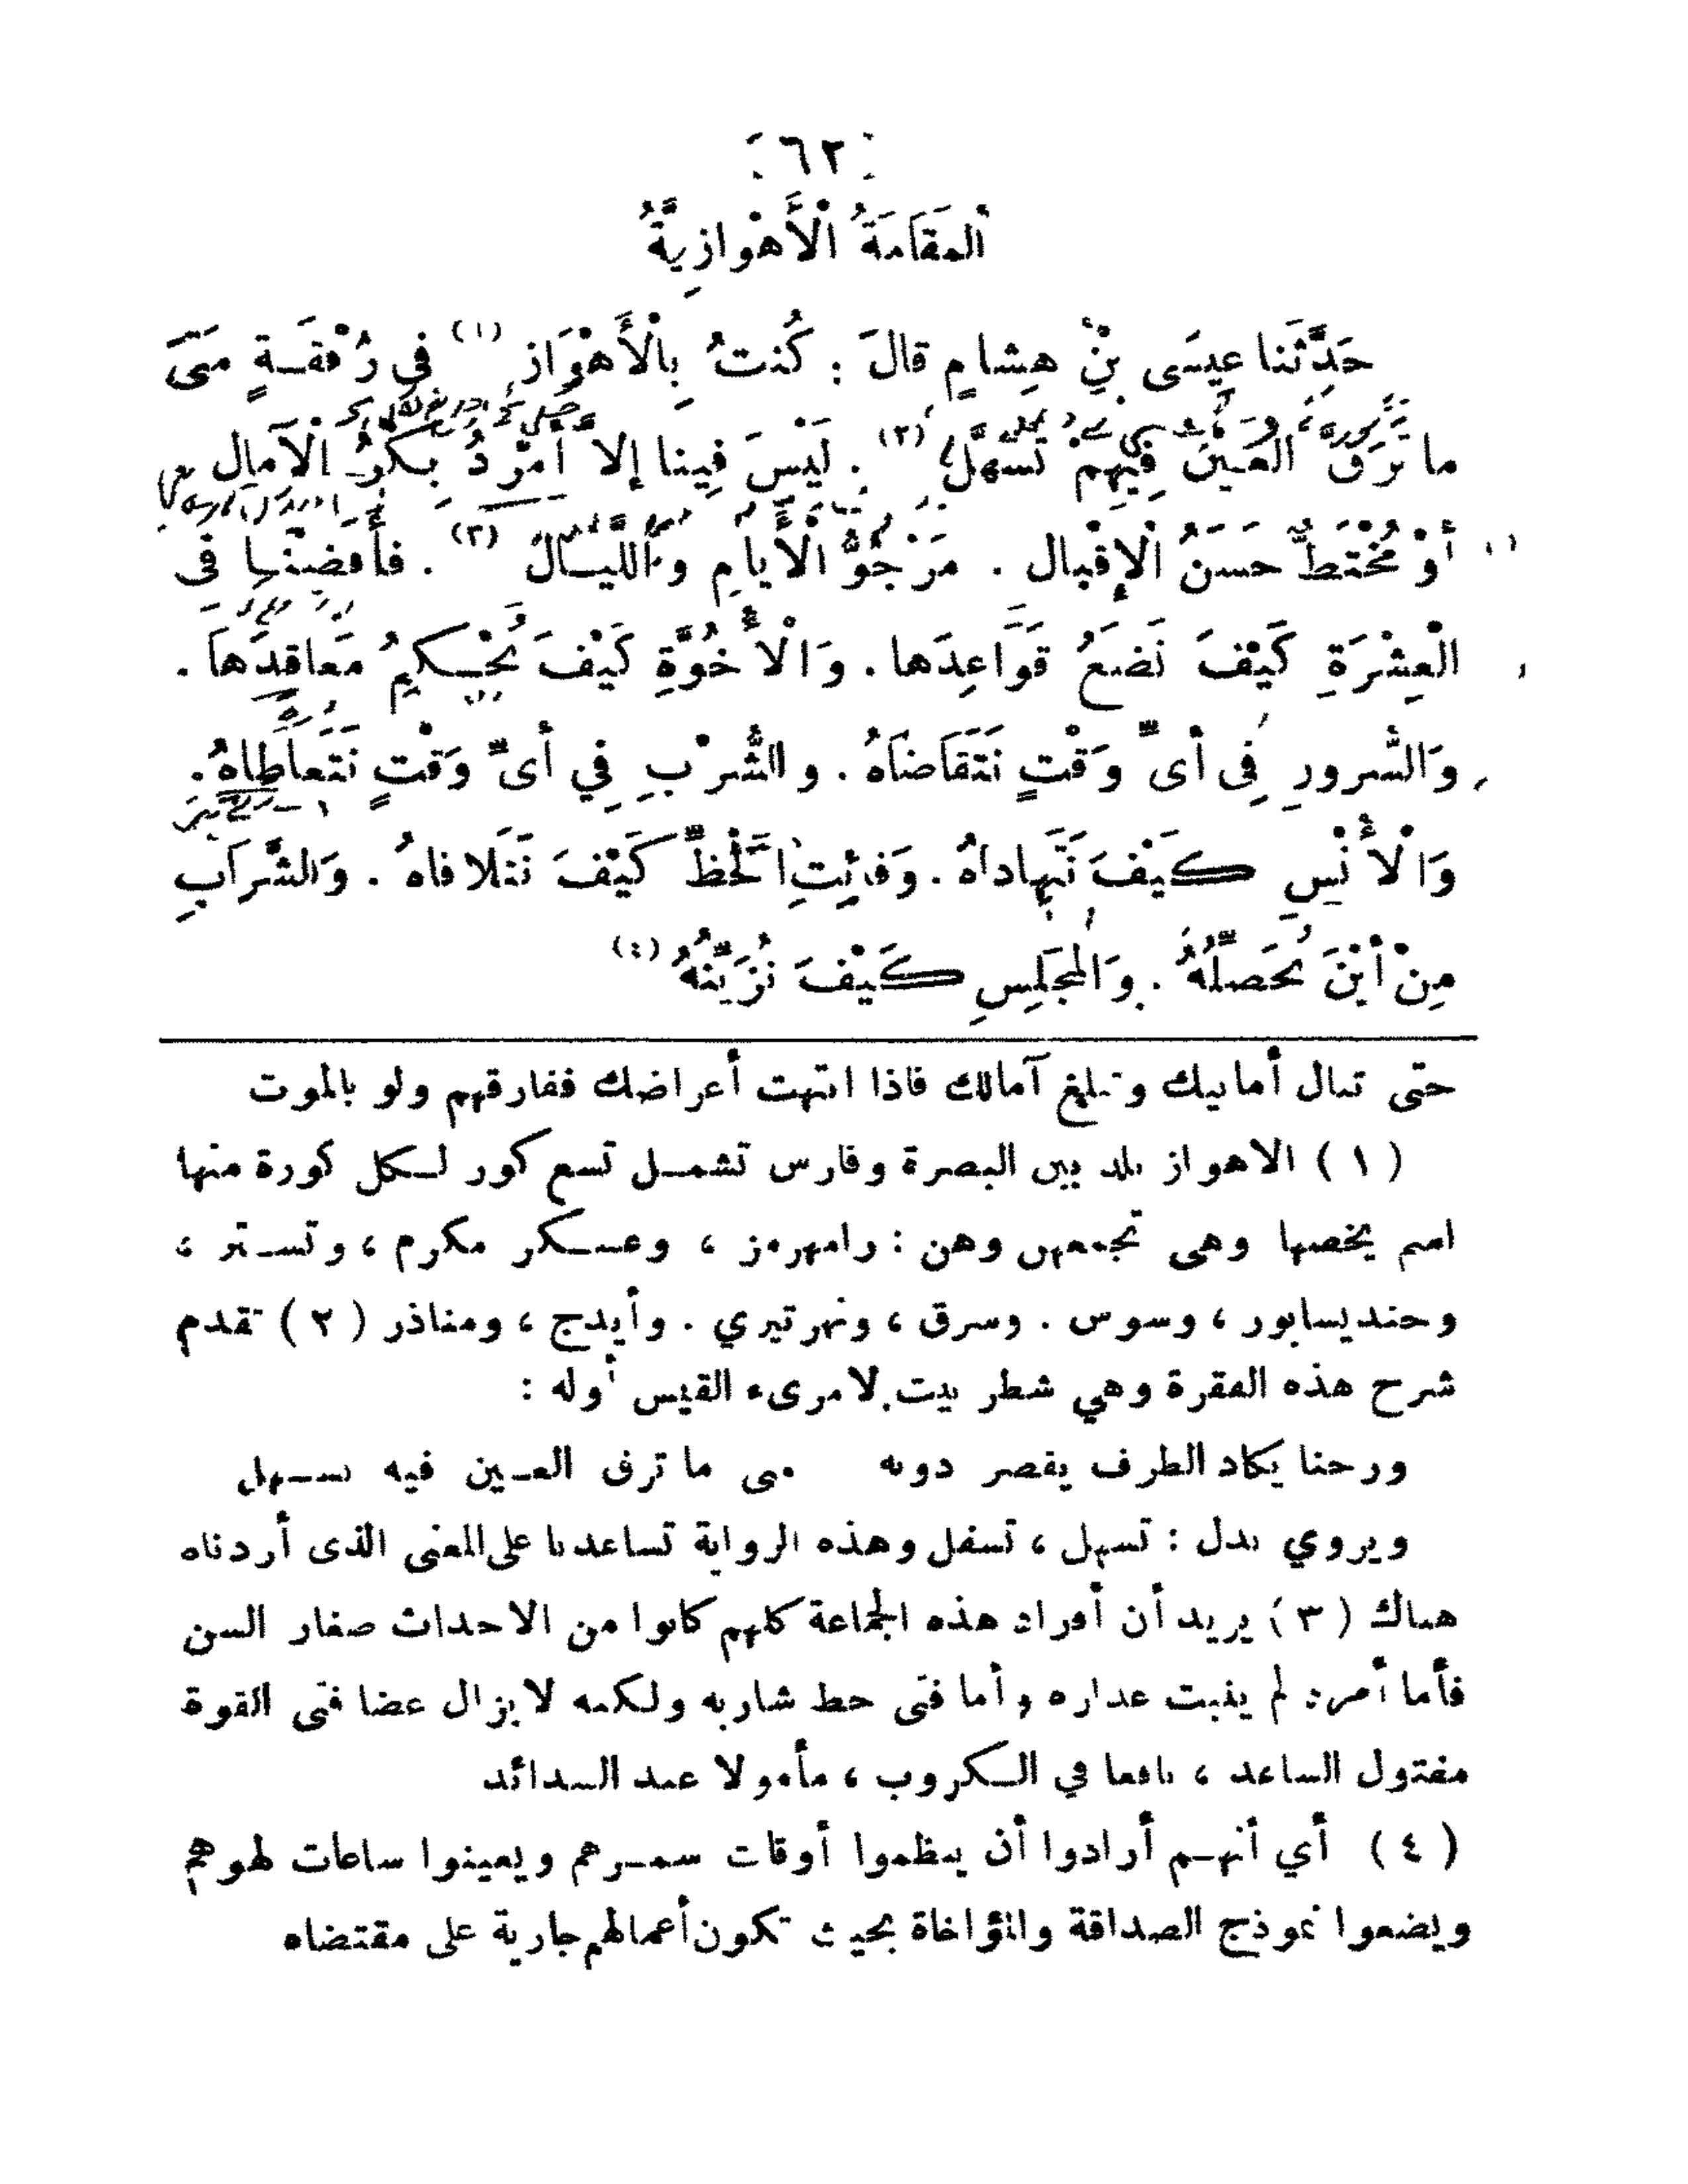 [٦٢]
المَقَامَةُ الْأَهْوازِيَّةُ
حَدَّثَنا عِيسَى بْنُ هِشامٍ قالَ : كُنتُ بِالْأَهْوَازِ (١) فِي رُفْقَةٍ مَتَى
ما تَرَقَّ العَيْنُ فِيهِمْ تَسَهَّلِ (٢) . لَيْسَ فِينا إلاَّ أَمْرَدُ بِكْرُ الْآمالِ
أوْ مُخْتَطٌّ حَسَنُ الْإقْبالِ . مَرْجُوُّ الْأَيامِ وَاللَّيالِ (٣) . فأَفَضْنَا فِى
الْعِشْرَةِ كَيْفَ نَضَعُ قَوَاعِدَها . وَالْأُخُوَّةِ كَيْفَ نُحْكِمُ مَعاقِدَهَا .
وَالسُّرورِ فِى أىِّ وَقْتٍ نَتَقَاضَاهُ . والشُّرْبِ فِي أىِّ وَقْتٍ نَتَعاطاهُ .
وَالْأُنْسِ كَيْفَ نَتَهاداهُ . وَفائِتِ الْحَظِّ كَيْفَ نَتَلافاهُ . وَالشَّرَابِ
مِنْ أَيْنَ نُحَصِّلُهُ . وَالمَجْلِسِ كَيْفَ نُزَيِّنُهُ (٤)
حتى تنال أمانيك وتبلغ آمالك فاذا انتهت أعراضك ففارقهم ولو بالموت
( ١ ) الاهواز بلد بين البصرة وفارس تشمل تسع كور لكل كورة منها
اسم يخصها وهى تجمعهن وهن : رامهرمز ، وعسكر مكرم ، وتستر ،
وجنديسابور ، وسوس . وسرق ، ونهرتيري . وأيدج ، ومناذر ( ٢ ) تقدم
شرح هذه الفقرة وهي شطر بيت لامرىء القيس أوله :
ورحنا يكاد الطرف يقصر دونه متى ما ترق العين فيه تسهل
ويروي بدل : تسهل ، تسفل وهذه الرواية تساعدنا على المعنى الذى أردناه
هناك ( ٣ ) يريد أن أفراد هذه الجماعة كلهم كانوا من الاحداث صغار السن
فأما أمرد لم ينبت عذاره وأما فتى خط شاربه ولكنه لا يزال غضا فتى القوة
مفتول الساعد ، نافعا في الكروب ، مأمولا عند الشدائد
( ٤ ) أي أنهم أرادوا أن ينظموا أوقات سمرهم ويعينوا ساعات لهوهم
ويضعوا نموذج الصداقة والمؤاخاة بحيث تكون أعمالهم جارية على مقتضاه